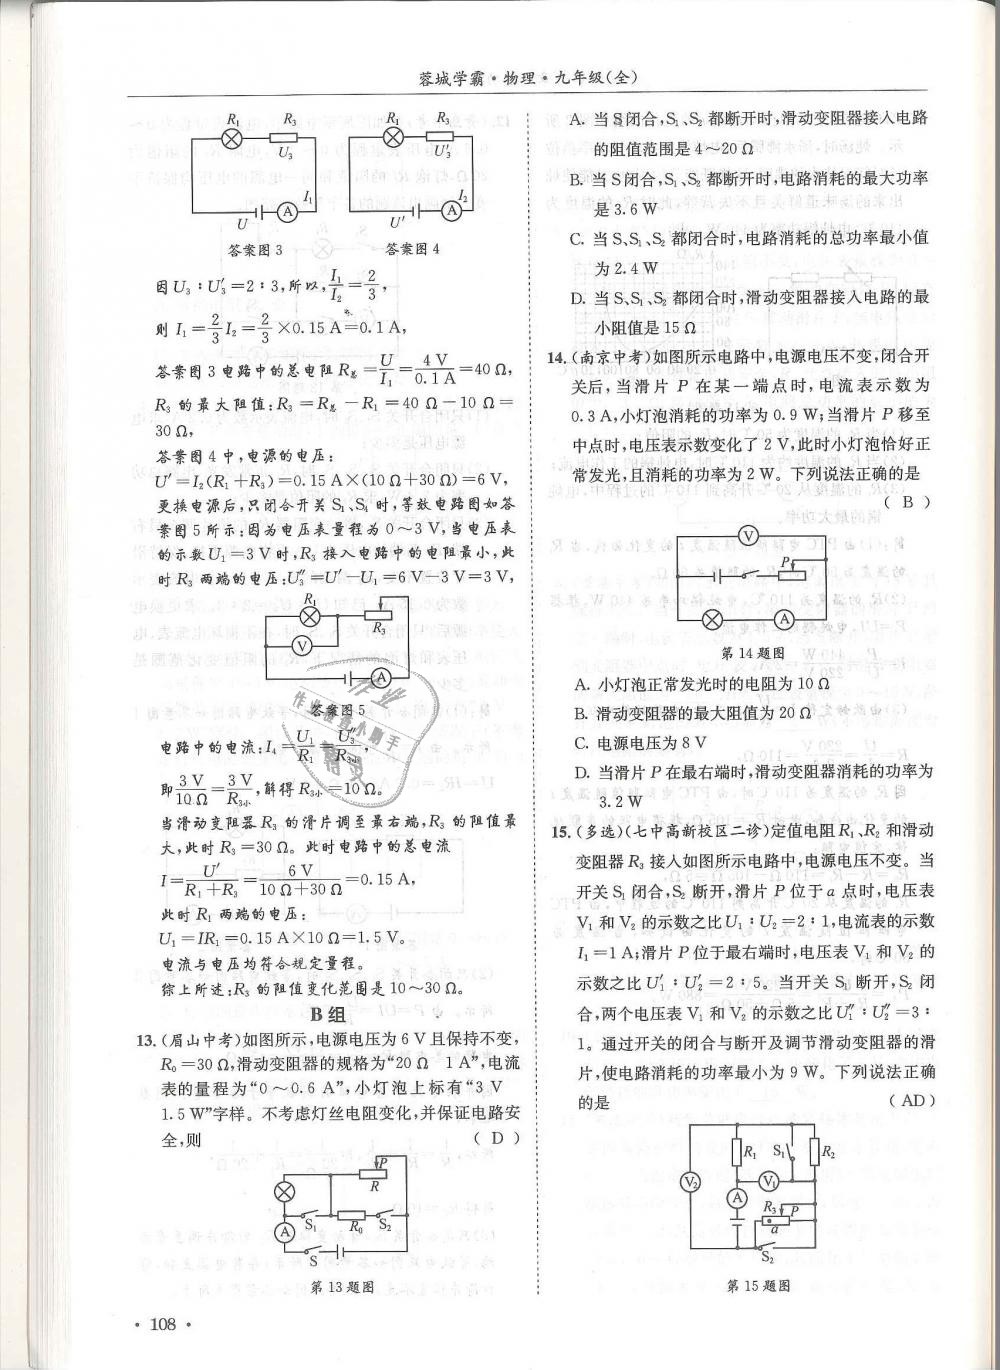 蓉城学霸·物理·九年级(全)
R₁ R₃ R₁ R₃
U₃ U₃′
I₁ I₂
A A
U U′
答案图 3 答案图 4
因 U₃∶U₃′=2∶3,所以,I₁/I₂=2/3,
则 I₁=2/3 I₂=2/3×0.15 A=0.1 A,
答案图 3 电路中的总电阻 R总=U/I₁=4 V/0.1 A=40 Ω,
R₃ 的最大阻值:R₃=R总-R₁=40 Ω-10 Ω=
30 Ω,
答案图 4 中,电源的电压:
U′=I₂(R₁+R₃)=0.15 A×(10 Ω+30 Ω)=6 V,
更换电源后,只闭合开关 S₁、S₄ 时,等效电路图如答
案图 5 所示:因为电压表量程为 0~3 V,当电压表
的示数 U₁=3 V 时,R₃ 接入电路中的电阻最小,此
时 R₃ 两端的电压:U₃″=U′-U₁=6 V-3 V=3 V,
R₁
R₃
V
A
答案图 5
电路中的电流:I₄=U₁/R₁=U₃″/R₃小,
即 3 V/10 Ω=3 V/R₃小,解得 R₃小=10 Ω。
当滑动变阻器 R₃ 的滑片调至最右端,R₃ 的阻值最
大,此时 R₃=30 Ω。此时电路中的总电流
I=U′/(R₁+R₃)=6 V/(10 Ω+30 Ω)=0.15 A,
此时 R₁ 两端的电压:
U₁=IR₁=0.15 A×10 Ω=1.5 V。
电流与电压均符合规定量程。
综上所述:R₃ 的阻值变化范围是 10~30 Ω。
B 组
13.(眉山中考)如图所示,电源电压为 6 V 且保持不变,
R₀=30 Ω,滑动变阻器的规格为“20 Ω 1 A”,电流
表的量程为“0~0.6 A”,小灯泡上标有“3 V
1.5 W”字样。不考虑灯丝电阻变化,并保证电路安
全,则 ( D )
P
R
A
S₁ R₀ S₂
S
第 13 题图
· 108 ·
A. 当 S 闭合,S₁、S₂ 都断开时,滑动变阻器接入电路
的阻值范围是 4~20 Ω
B. 当 S 闭合,S₁、S₂ 都断开时,电路消耗的最大功率
是 3.6 W
C. 当 S、S₁、S₂ 都闭合时,电路消耗的总功率最小值
为 2.4 W
D. 当 S、S₁、S₂ 都闭合时,滑动变阻器接入电路的最
小阻值是 15 Ω
14.(南京中考)如图所示电路中,电源电压不变,闭合开
关后,当滑片 P 在某一端点时,电流表示数为
0.3 A,小灯泡消耗的功率为 0.9 W;当滑片 P 移至
中点时,电压表示数变化了 2 V,此时小灯泡恰好正
常发光,且消耗的功率为 2 W。下列说法正确的是
( B )
V
P
A
第 14 题图
A. 小灯泡正常发光时的电阻为 10 Ω
B. 滑动变阻器的最大阻值为 20 Ω
C. 电源电压为 8 V
D. 当滑片 P 在最右端时,滑动变阻器消耗的功率为
3.2 W
15.(多选)(七中高新校区二诊)定值电阻 R₁、R₂ 和滑动
变阻器 R₃ 接入如图所示电路中,电源电压不变。当
开关 S₁ 闭合,S₂ 断开,滑片 P 位于 a 点时,电压表
V₁ 和 V₂ 的示数之比 U₁∶U₂=2∶1,电流表的示数
I₁=1 A;滑片 P 位于最右端时,电压表 V₁ 和 V₂ 的
示数之比 U₁′∶U₂′=2∶5。当开关 S₁ 断开,S₂ 闭
合,两个电压表 V₁ 和 V₂ 的示数之比 U₁″∶U₂″=3∶
1。通过开关的闭合与断开及调节滑动变阻器的滑
片,使电路消耗的功率最小为 9 W。下列说法正确
的是 ( AD )
R₁ S₁ R₂
V₂ V₁
A R₃ P
a
S₂
第 15 题图